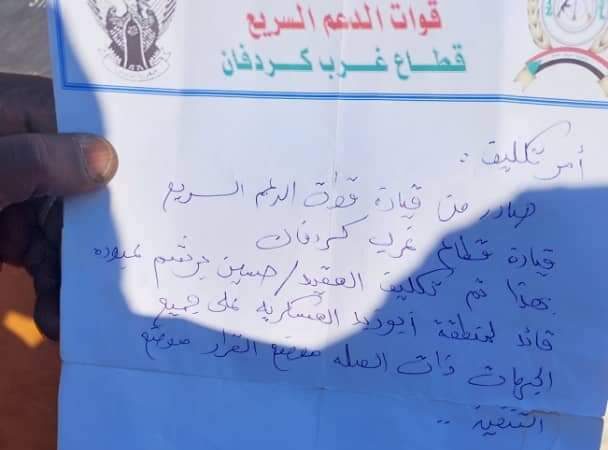 قوات الدعم السريع
قطاع غرب كردفان
أمر تكليف :
صادر من قيادة قوات الدعم السريع
قيادة قطاع غرب كردفان
بهذا تم تكليف العقيد / حسين
قائد لمنطقة العسكرية على جميع
الجهات ذات الصله موضع القرار موضع
التنفيذ ..